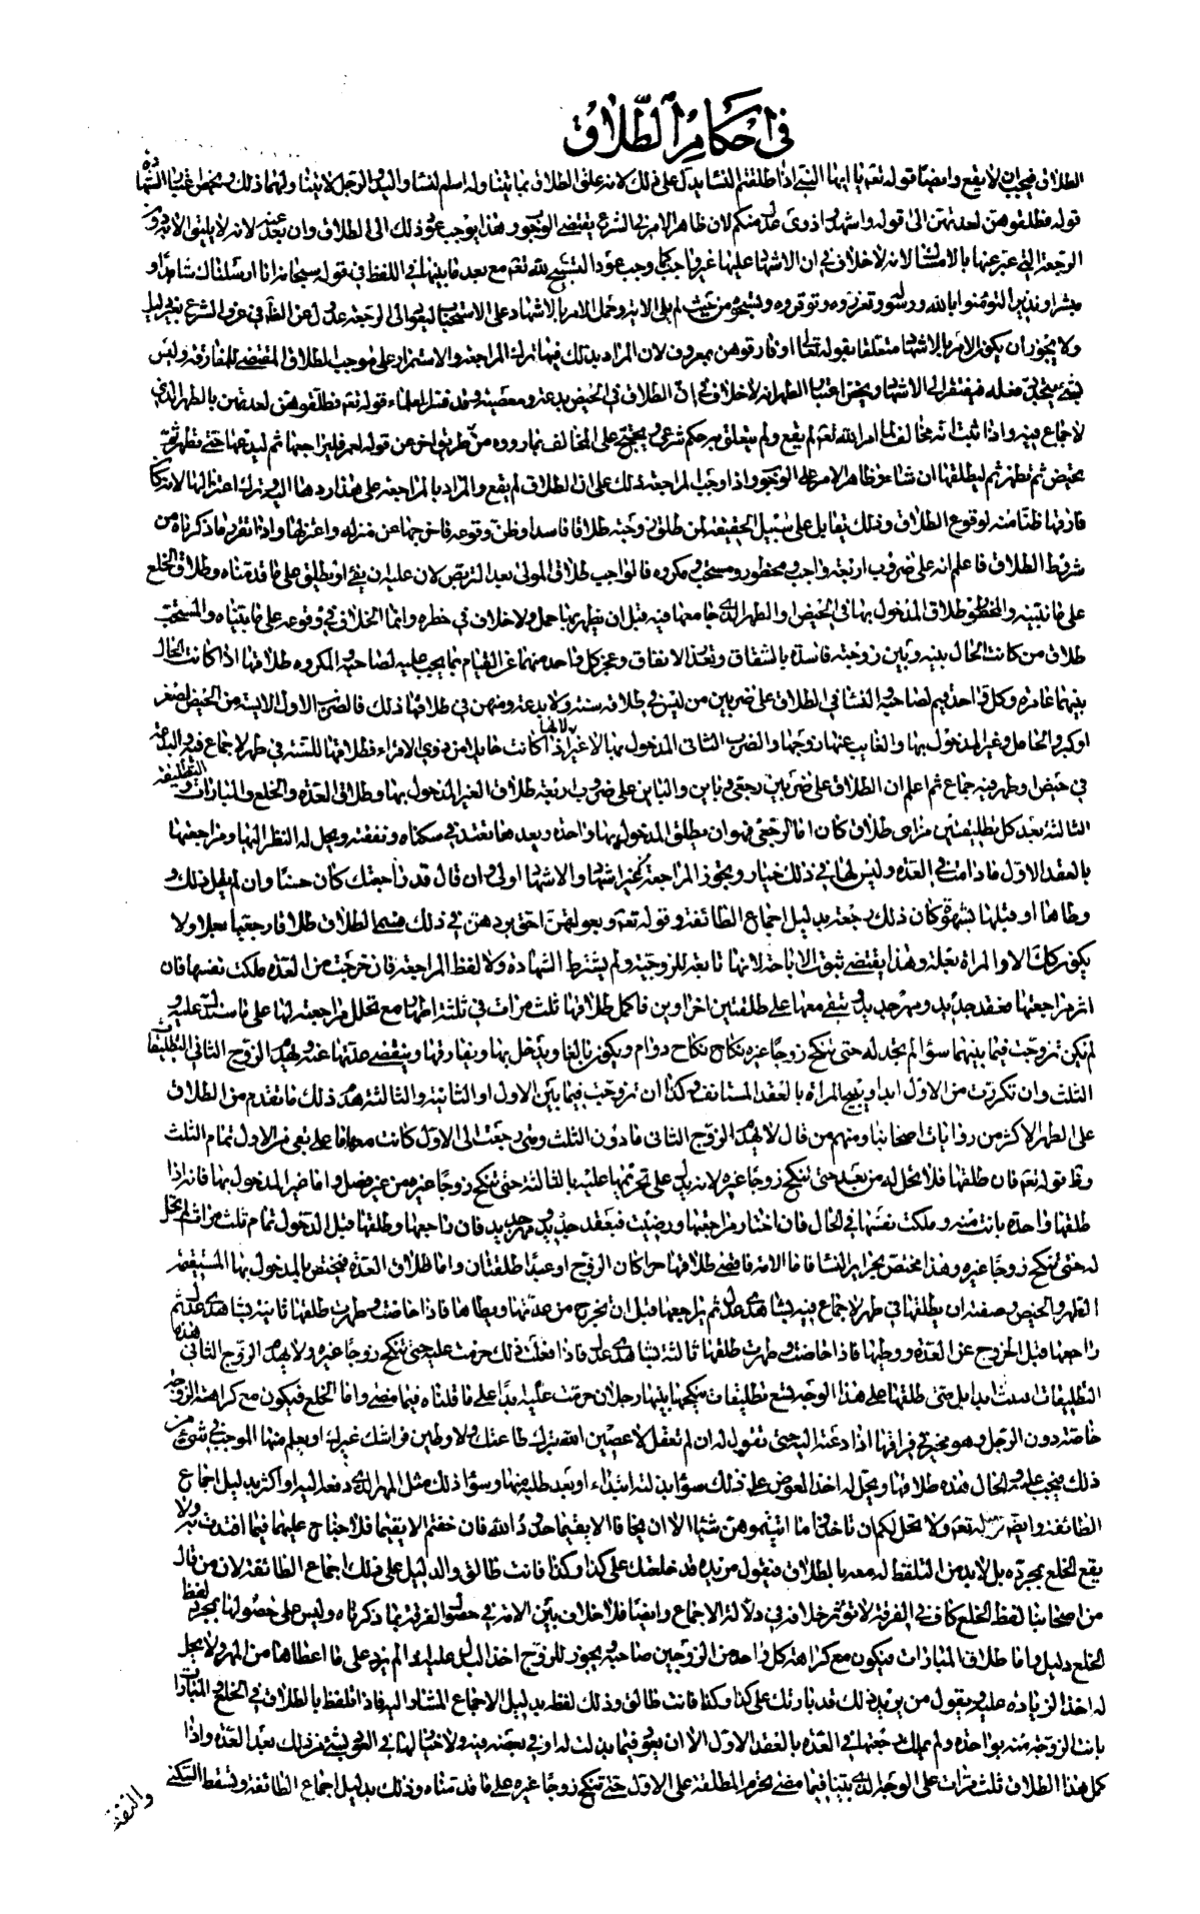 في احكام الطلاق
الطلاق فيجب ان لا يقع وايضا قوله تعم يا ايها النبي اذا طلقتم النسا يدل على ذلك لانه علق الطلاق بما يتنا وله اسم النسا واليد والرجل لا يتنا ولهما ذلك و يخص اعتبار الشهادة
قوله فطلقوهن لعدتهن الى قوله واشهدوا ذوى عدل منكم لان ظاهر الامر في الشرع يقتضي الوجوب وهذا يوجب عود ذلك الى الطلاق وان بعد عنه لانه لا يليق الا به دون
الرجعة التي عبر عنها بالامساك لانه لا خلاف في ان الاشهاد عليها غير واجب كما وجب عود التسبيح لله تعم مع بعد ما بينهما في اللفظ في قوله سبحانه انا ارسلناك شاهدا و
مبشرا ونذيرا لتؤمنوا بالله ورسوله وتعزروه وتوقروه وتسبحوه من حيث لم يلق الا به وحمل الامر بالاشهاد على الاستحباب ليعود الى الرجعة عدول عن الظاهر في عرف الشرع بغير دليل
ولا يجوز ان يكون الامر بالاشهاد متعلقا بقوله تعالى او فارقوهن بمعروف لان المراد بذلك هيهنا ترك المراجعة والاستمرار على موجب الطلاق المقتضي للمفارقة وليس
بشئ يتجدد فعله فيفتقر الى الاشهاد ويخص اعتبار الطهر انه لا خلاف في ان الطلاق في الحيض بدعة ومعصية وقد فسر العلماء قوله تعم فطلقوهن لعدتهن بالطهر الذي
لا جماع فيه واذا ثبت انه مخالف لما امر الله تعم لم يقع ولم يتعلق به حكم شرعي ويحتج على المخالف بما رووه من طريق اخر عن قوله لعمر فليراجعها ثم ليدعها حتى تطهر ثم
تحيض ثم تطهر ثم ليطلقها ان شاء وظاهر الامر على الوجوب واذا وجب المراجعة دل ذلك على ان الطلاق لم يقع والمراد بالمراجعة على هذا ردها اليه وترك اعتزالها لانه كان
فارقها ظنا منه لوقوع الطلاق وذلك يقابل على سبيل الحقيقة لمن طلق زوجته طلاقا فاسدا وظن وقوعه فاخرجها عن منزله واعتزلها واذا تقرر ما ذكرناه من
شروط الطلاق فاعلم انه على ضروب اربعة واجب ومحظور ومستحب ومكروه فالواجب طلاق المولى بعد التربص لان عليه ان يفئ او يطلق على ما قدمناه وطلاق الخلع
على ما نبينه والمحظور طلاق المدخول بها في الحيض او الطهر الذي جامعها فيه قبل ان يظهر بها حمل ولا خلاف في خطره وانما الخلاف في وقوعه على ما بيناه والمستحب
طلاق من كانت الحال بينه وبين زوجته فاسدة بالشقاق وتعذر الاتفاق وعجز كل واحد منهما عن القيام بما يجب عليه لصاحبه والمكروه طلاقها اذا كانت الحال
بينهما عامرة وكل واحد قيم لصاحبه والنسا في الطلاق على ضربين من ليس في طلاقه سنة ولا بدعة ومنهن في طلاقها ذلك فالضرب الاول الايسة من الحيض لصغر
او كبر والحامل وغير المدخول بها والغايب عنها زوجها والضرب الثانى المدخول بها لا غير اذا كانت حايلا من ذوي الاقراء فطلاقها للسنة في طهر لا جماع فيه والبدعة
في حيض او طهر فيه جماع ثم اعلم ان الطلاق على ضربين رجعي وباين والباين على ضروب اربعة طلاق الغير المدخول بها وطلاق العدة والخلع والمبارات والتطليقة
الثالثة بعد كل تطليقتين من اى طلاق كان اما الرجعي فهو ان يطلق المدخول بها واحدة ويدعها تعتد في سكناه ونفقته ويحل له النظر اليها ومراجعتها
بالعقد الاول ما دامت في العدة وليس لها في ذلك خيار ويجوز المراجعة بغير اشهاد والاشهاد اولى وان قال قد راجعتك كان حسنا وان لم يقل ذلك و
وطاها او قبلها بشهوة كان ذلك رجعة بدليل اجماع الطائفة وقوله تعم وبعولتهن احق بردهن في ذلك فسمى الطلاق طلاقا رجعيا بعلا ولا
يكون كذلك الا والمراة بعلة وهذا يقتضي ثبوت الاباحة لانها تابعة للزوجية ولم يشترط الشهادة ولا لفظ المراجعة فان خرجت من العدة ملكت نفسها فان
اثر مراجعتها فبعقد جديد ومهر جديد يبقى معها على طلقتين اخراوين فاكمل طلاقها ثلث مرات في ثلثة اطهار مع تخلل مراجعته لها على ما سندل عليه و
لم تكن تزوجت فيما بينهما سواه لم تحل له حتى تنكح زوجا غيره نكاح نكاح دوام ويكون بالغا ويدخل بها ويفارقها وينقضي عدتها عنه ويهدم الزوج الثاني التطليقات
الثلث وان تكررت من الاول ابدا ويبيح المراة بالعقد المستانف وكذا ان تزوجت فيما بين الاول او الثانية والثالثة هدم ذلك ما تقدم من الطلاق
على الظهر الاكثر من روايات اصحابنا ومنهم من قال لا يهدم الزوج الثانى ما دون الثلث ومتى رجعت الى الاول كانت معه على ما بقي من الاول تمام الثلث
وظ قوله تعم فان طلقها فلا تحل له من بعد حتى تنكح زوجا غيره لانه يدل على تحريمها عليه بالثالثة حتى تنكح زوجا غيره من غير فصل واما غير المدخول بها فانه اذا
طلقها واحدة بانت منه وملكت نفسها في الحال فان اختار مراجعتها ورضيت فبعقد جديد ومهر جديد فان راجعها وطلقها قبل الدخول تمام ثلث مرات لم تحل
له حتى تنكح زوجا غيره وهذا مختص بحراير النسا فاما الامة فاقصى طلاقها حرا كان الزوج او عبدا طلقتان واما طلاق العدة فيختص بالمدخول بها المستقيمة
الطهر والحيض وصفته ان يطلقها في طهر لا جماع فيه بشاهدى عدل ثم يراجعها قبل ان تخرج من عدتها ويطاها فاذا حاضت وطهرت طلقها ثانية بشاهدى عدل ثم
راجعها قبل الخروج عن العدة ووطيها فاذا حاضت وطهرت طلقها ثالثة بشاهدى عدل فاذا فعل ذلك حرمت عليه حتى تنكح زوجا غيره ولا يهدم الزوج الثاني هذه
التطليقات الثلث ابدا بل متى طلقها على هذا الوجه تسع تطليقات ينكحها بينها رجلان حرمت عليه ابدا على ما قلناه فيما مضى واما الخلع فيكون مع كراهة الزوجة
خاصة دون الرجل وهو مخير في فراقها اذا دعته اليه حتى تقول له ان لم تفعل لاعصين الله بترك طاعتك ولاوطين فراشك غيرك او يعلم منها الموجب في شئ من
ذلك فيجب عليه في الحال هذه طلاقها ويحل له اخذ العوض على ذلك سواء بذلته ابتداء او بعد طلبه منها وسواء ذلك مثل المهر الذي دفعه اليها او اكثر بدليل اجماع
الطائفة وايضا قوله تعم ولا يحل لكم ان تاخذوا مما اتيتموهن شيئا الا ان يخافا الا يقيما حدود الله فان خفتم الا يقيما فلا جناح عليهما فيما افتدت به ولا
يقع الخلع بمجرده بل لا بد من التلفظ له معه بالطلاق فيقول مريده قد خلعتك على كذا وكذا فانت طالق والدليل على ذلك اجماع الطائفة لان من قال
من اصحابنا لفظ الخلع كاف في الفرقة لا تؤثر خلافه في دلالة الاجماع وايضا فلا خلاف بين الامة في حصول الفرقة بما ذكرناه وليس على حصولها بمجرد لفظ
الخلع دليل واما طلاق المبارات فيكون مع كراهة كل واحد من الزوجين صاحبه ويجوز للزوج اخذ البدل عليه اذا لم يزد على ما اعطاها من المهر ولا يحل
له اخذ الزيادة عليه ويقول من يريد ذلك قد باراتك على كذا وكذا فانت طالق وذلك لفظه بدليل الاجماع المشار اليه فاذا تلفظ بالطلاق في الخلع والمبارات
بانت الزوجة منه بواحدة ولم يملك رجعتها في العدة بالعقد الاول الا ان يعود فيما بذلت له او في بعضه فيه ولا خيار لها في العود بشئ من ذلك بعد العدة واذا
كمل هذا الطلاق ثلث مرات على الوجه الذي بينا فيما مضى يحرم المطلقة على الاول حتى تنكح زوجا غيره على ما قدمناه وذلك بدليل اجماع الطائفة ويسقط السكنى
والنفقة